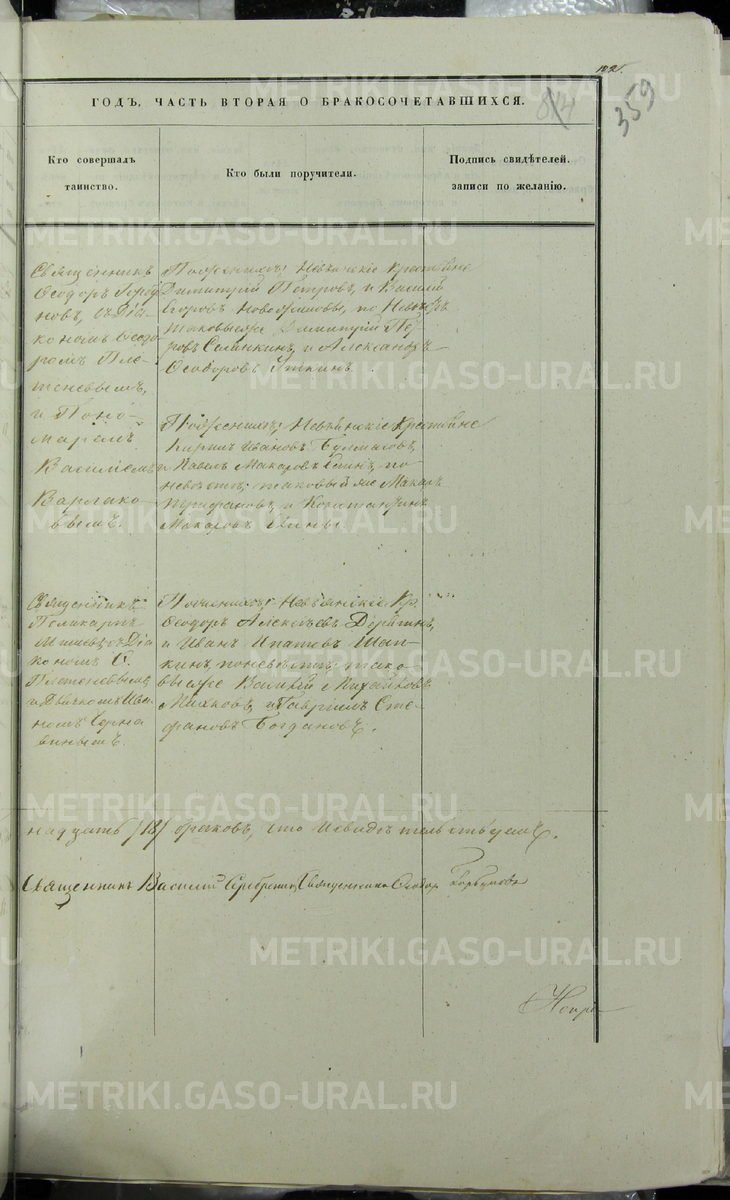 ГОДЪ. ЧАСТЬ ВТОРАЯ О БРАКОСОЧЕТАВШИХСЯ.
359
Кто совершалъ
таинство.
Кто были поручители.
Подпись свидѣтелей.
записи по желанію.
Священникъ
Ѳеодоръ
новъ, съ Діа-
кономъ Ѳеодо
ромъ Пле-
теневымъ,
и Поно-
маремъ
Василіемъ
Варлако-
вымъ.
По женихѣ: Невьянскіе Крестьяне
Димитрій Петровъ, и Василій
Егоровъ Новожиловы, по Невѣстѣ
таковыеже Димитрій Пет
ровъ и Александръ
Ѳеодоровъ Уткинъ
По женихѣ; Невьянскіе Крестьяне
Кирилъ Ивановъ
и Павелъ Макаровъ по
невѣстѣ; таковый же Макаръ
и Константинъ
Макаровъ
Священникъ
Поликарпъ
съ Діа
кономъ Ѳ.
Плетеневымъ
и Дьячкомъ Ива
номъ Черна
винымъ.
По женихѣ; Невьянскіе Кр.
Ѳеодоръ Алексѣевъ
и Иванъ Ипатовъ Шап-
кинъ, по невѣстѣ; тако
выеже Василій Михайловъ
и Гавріилъ Сте-
фановъ Богдановъ.
надцать /18/ браковъ, въ томъ
Священникъ Василій Серебренниковъ Священникъ Ѳеодоръ Горбуновъ
METRIKI.GASO-URAL.RU